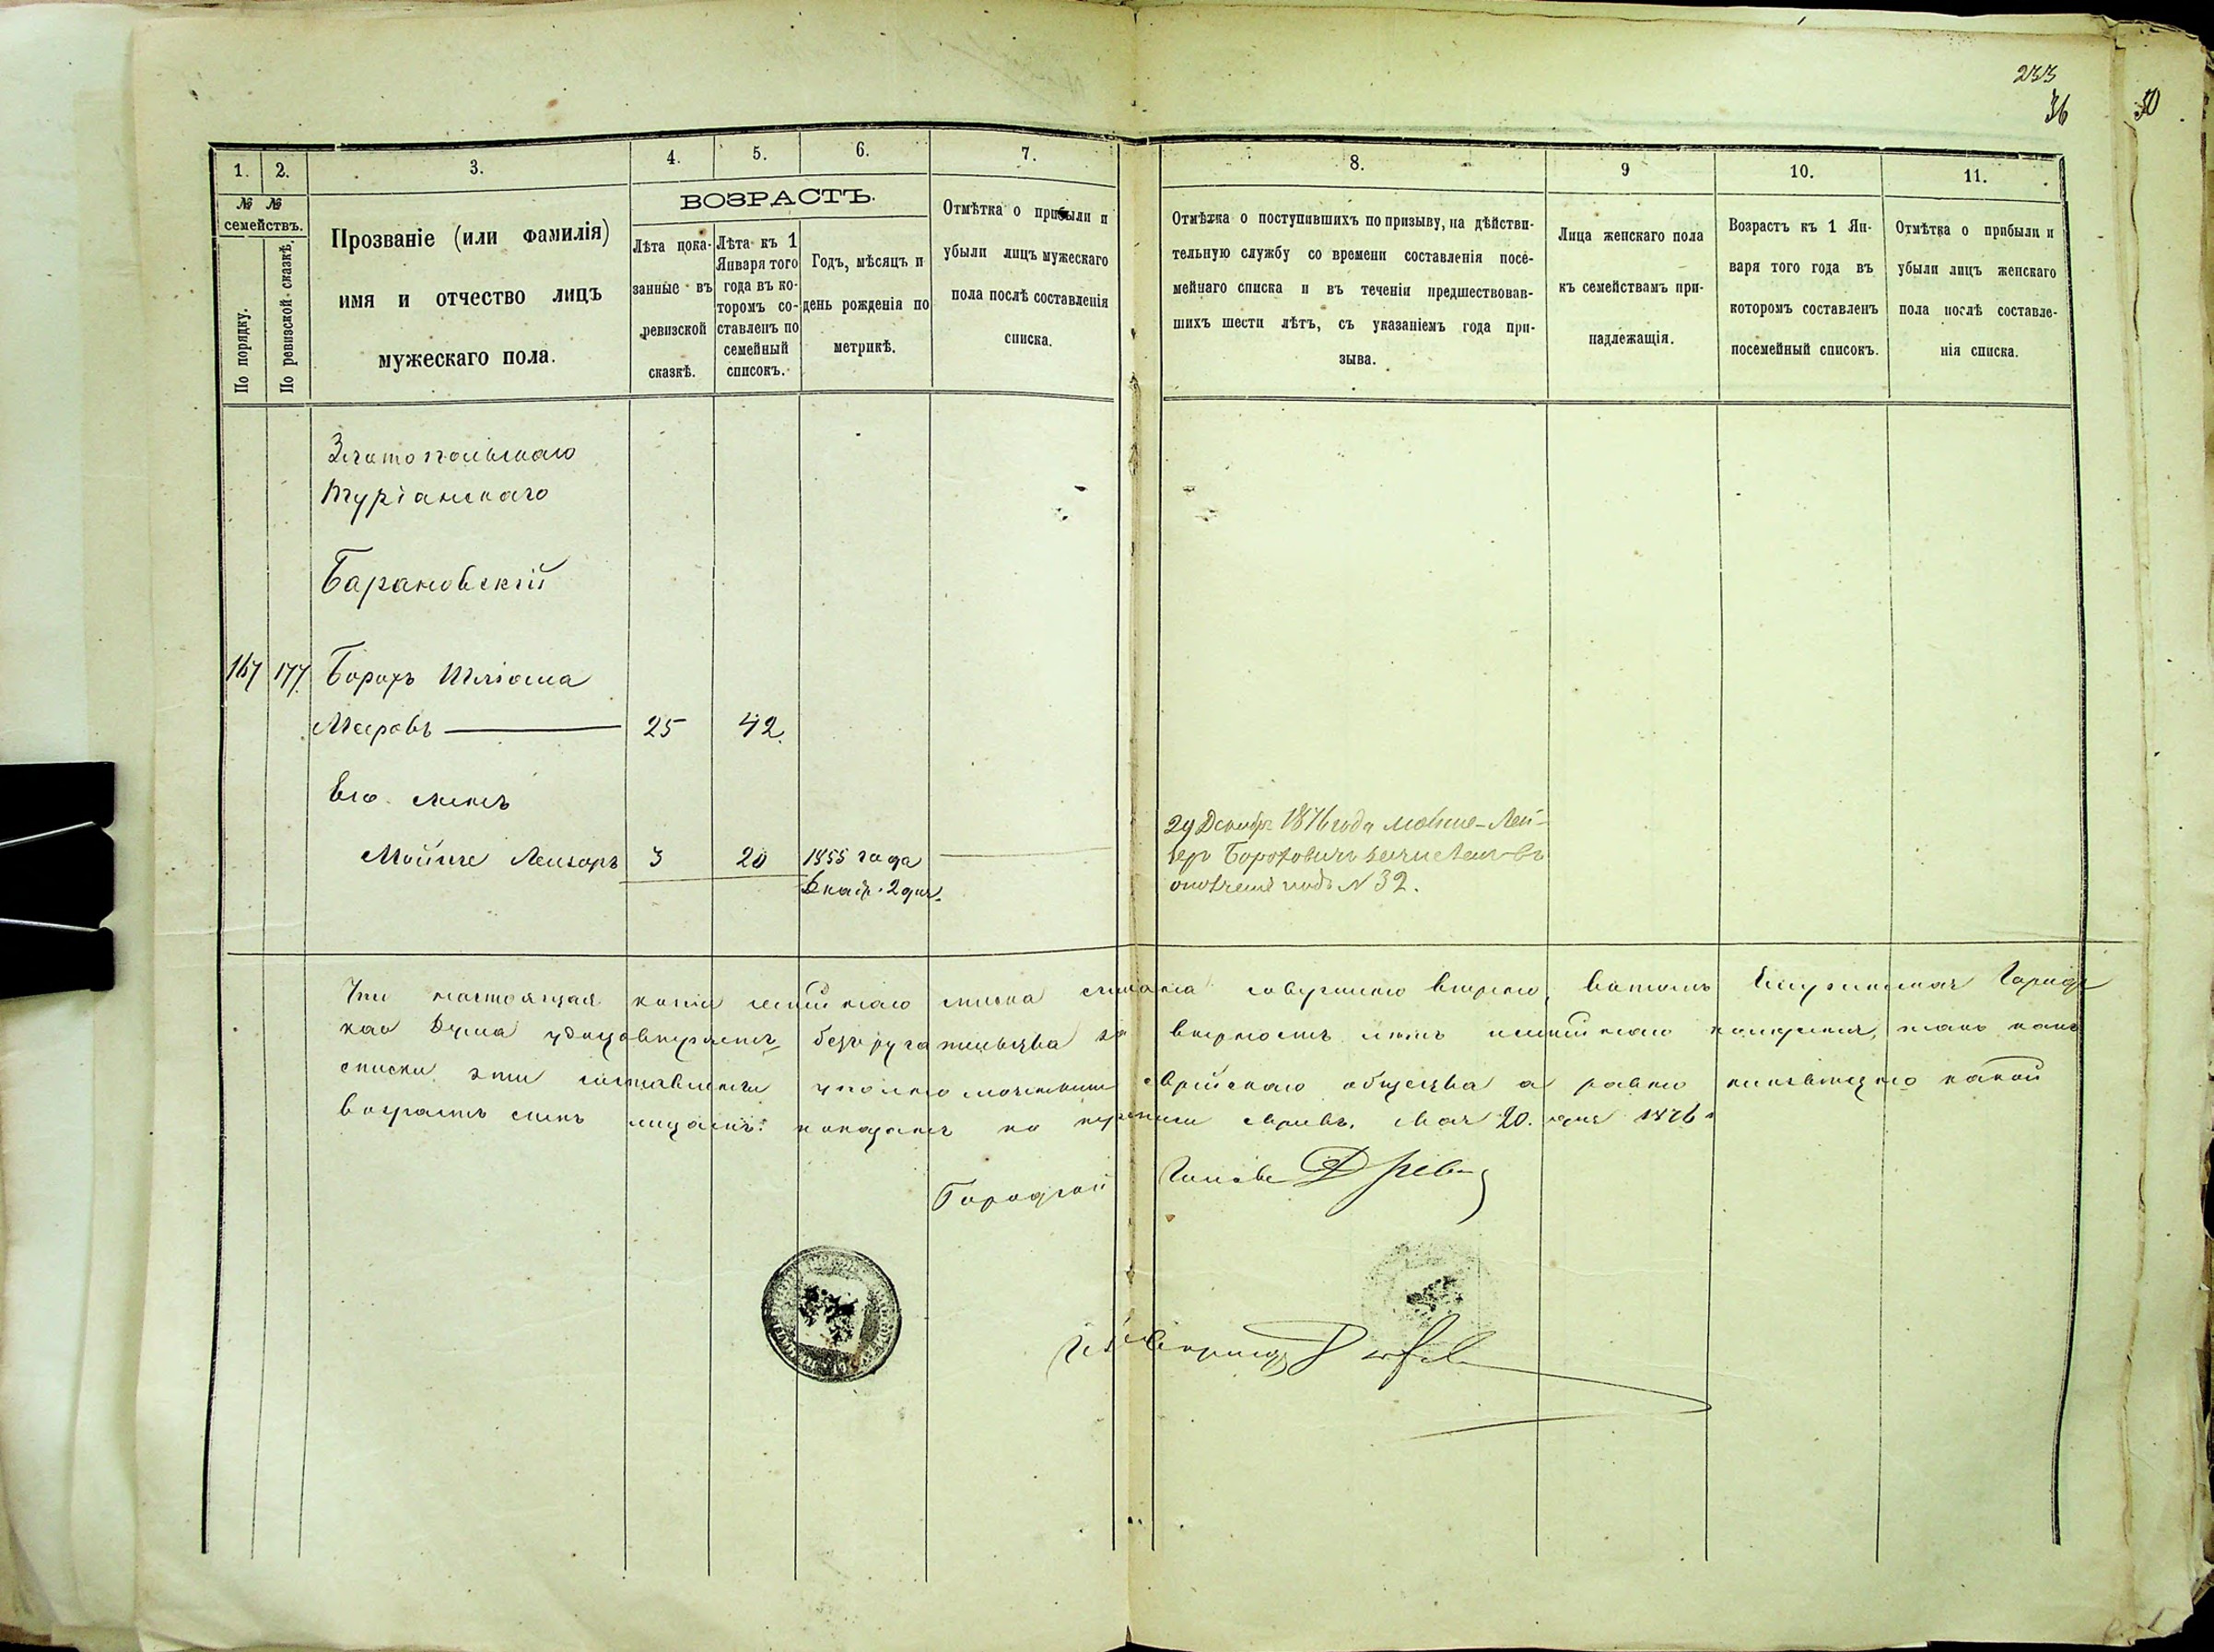 233
36
50
1.
2.
3.
4.
5.
6.
7.
8.
9
10.
11.
№ №
семействъ.
По порядку.
По ревизской сказкѣ.
Прозваніе (или фамилія)
имя и отчество лицъ
мужескаго пола.
ВОЗРАСТЪ.
Лѣта пока-
занные въ
ревизской
сказкѣ.
Лѣта къ 1
Января того
года въ ко-
торомъ со-
ставленъ по
семейный
списокъ.
Годъ, мѣсяцъ и
день рожденія по
метрикѣ.
Отмѣтка о прибыли и
убыли лицъ мужескаго
пола послѣ составленія
списка.
Отмѣтка о поступившихъ по призыву, на дѣйстви-
тельную службу со времени составленія посе-
мейнаго списка и въ теченіи предшествовав-
шихъ шести лѣтъ, съ указаніемъ года при-
зыва.
Лица женскаго пола
къ семействамъ при-
надлежащія.
Возрастъ къ 1 Ян-
варя того года въ
которомъ составленъ
посемейный списокъ.
Отмѣтка о прибыли и
убыли лицъ женскаго
пола послѣ составле-
нія списка.
Златопольскаго
Туріанскаго
Барановскій
167 177. Борохъ
Мееровъ 25 42.
Его сынъ
Мойше Лейзоръ 3 20 1855 года
Декаб. 2 дня.
29 Декабря 1876 года Мовше-Лей-
зеръ Бороховичъ въ
подъ N 32.
Что настоящая копія семейнаго списка совершенно вѣрно, въ томъ Городс
кая Дума удостовѣряетъ безъ ручательства за вѣрность лѣтъ такъ какъ
списки эти составлены уполномоченными еврейскаго общества а равно какой
возрастъ симъ лицамъ показанъ по переписи евреевъ. Мая 20. дня 1876 г
Городской Голова
Секретарь